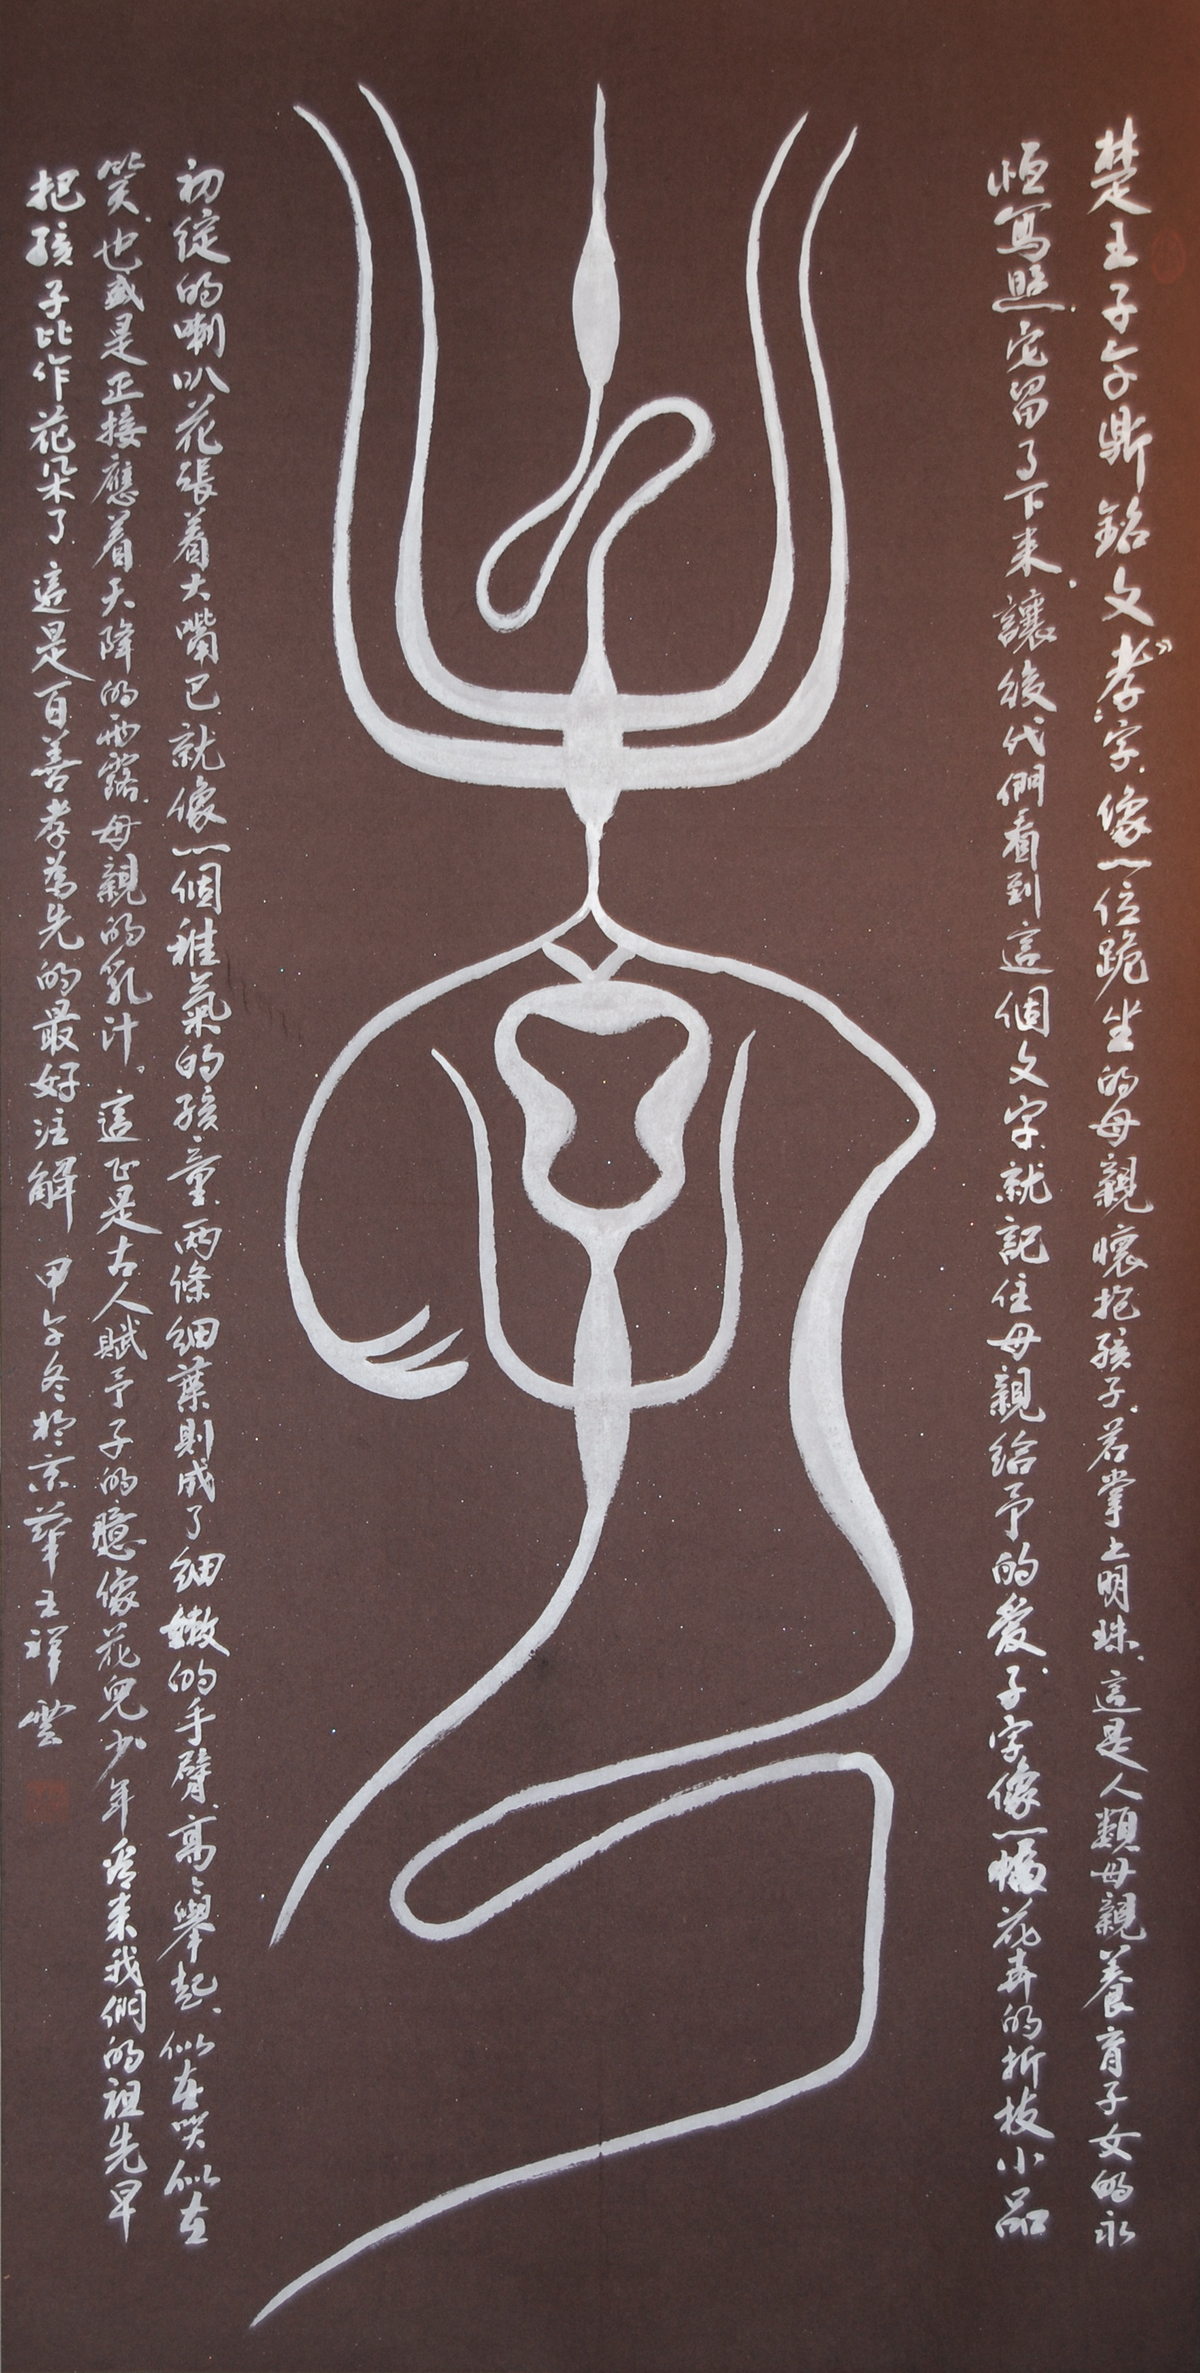 楚王子午鼎銘文"孝"字,像一位跪坐的母親懷抱孩子,若掌上明珠,這是人類母親養育子女的永
恒寫照,它留了下來,讓後代們看到這個文字,就記住母親給予的愛,子字像一幅花卉的折枝小品
孝
初綻的喇叭花張着大嘴巴就像一個稚氣的孩童,兩條細葉則成了細嫩的手臂,高高舉起,似在哭似在
笑,也或是正接應着天降的雨露,母親的乳汁。這正是古人賦予子的臆像,花兒少年,看來我們的祖先早
把孩子比作花朵了,這是百善孝為先的最好注解 甲午冬於京華王祥雲